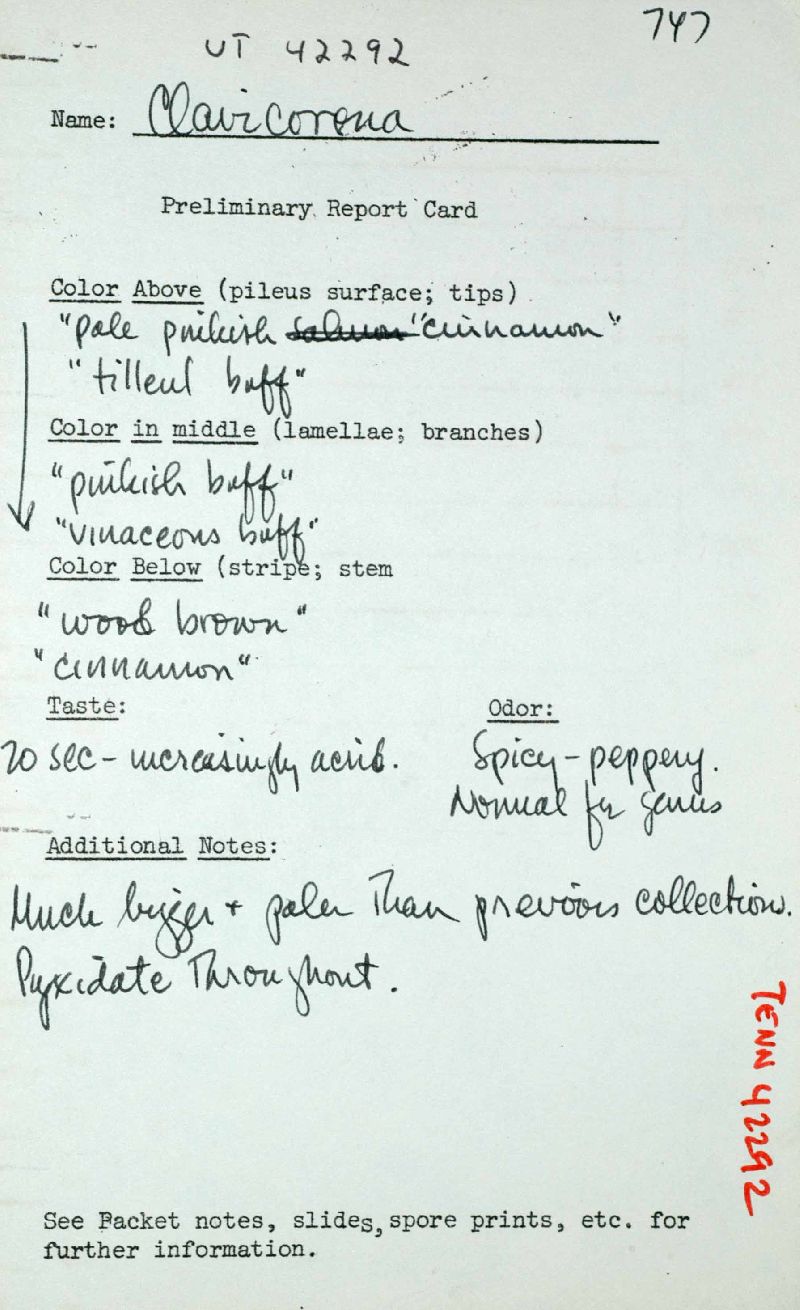 747
UT 42292
Name: Clavicorona
Preliminary Report Card
Color Above (pileus surface; tips)
"pale pinkish salmon" "cinnamon"
"tilleul buff"
Color in middle (lamellae; branches)
"pinkish buff"
"vinaceous buff"
Color Below (stripe; stem
"wood brown"
"cinnamon"
Taste: Odor:
20 sec - increasingly acrid. Spicy-peppery.
Normal for genus
Additional Notes:
Much bigger + paler than previous collection.
Pyxidate throughout.
TENN 42292
See Packet notes, slides, spore prints, etc. for
further information.